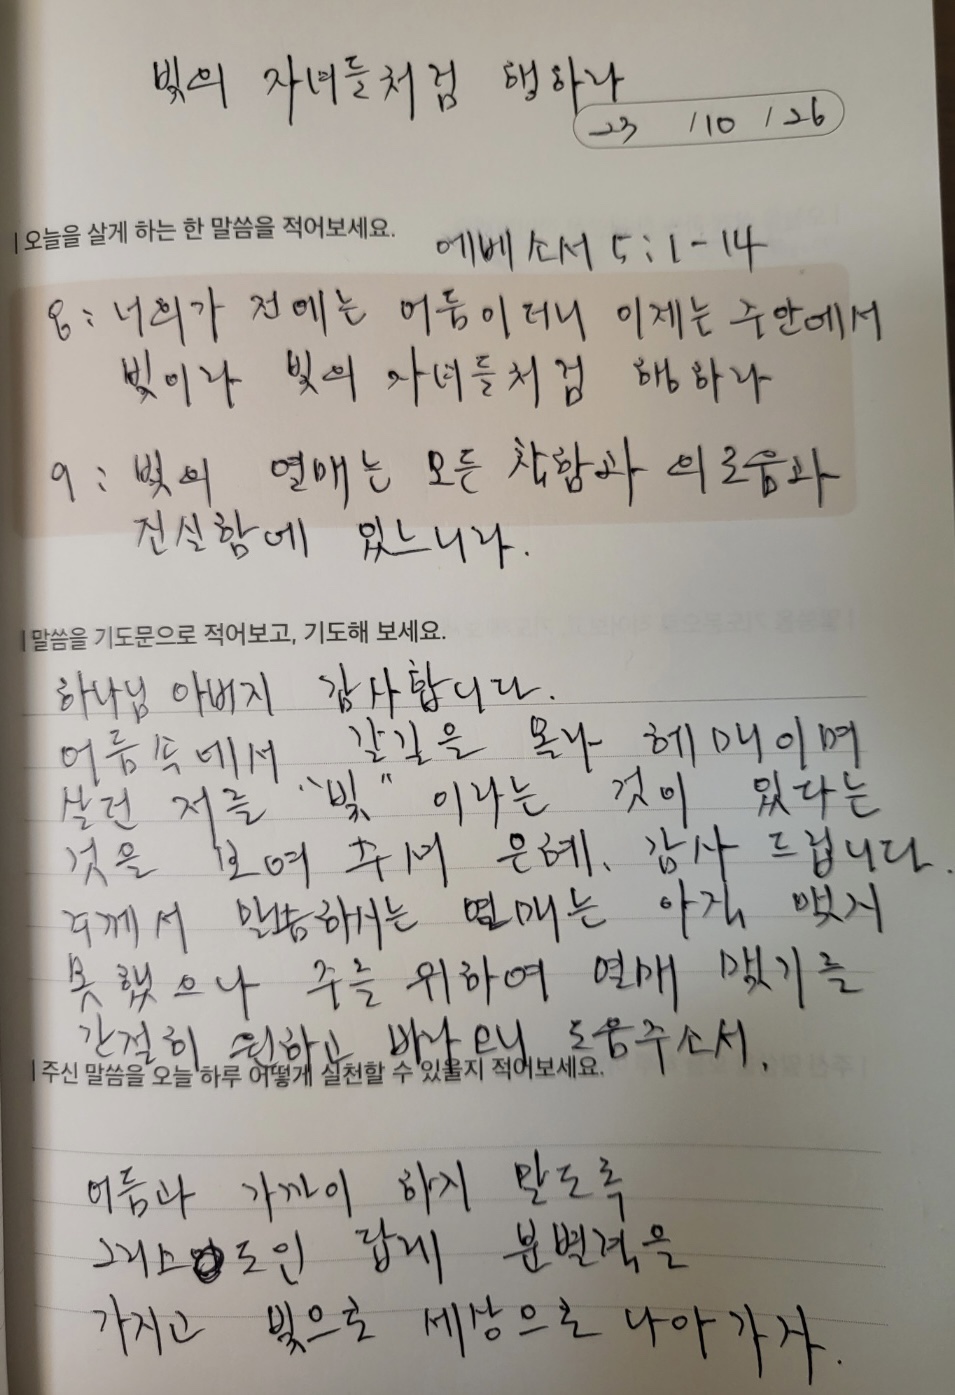 빛의 자녀들처럼 행하라
23 / 10 / 26
오늘을 살게 하는 한 말씀을 적어보세요.
에베소서 5:1-14
8: 너희가 전에는 어둠이더니 이제는 주안에서
빛이라 빛의 자녀들처럼 행하라
9: 빛의 열매는 모든 착함과 의로움과
진실함에 있느니라.
말씀을 기도문으로 적어보고, 기도해 보세요.
하나님 아버지 감사합니다.
어둠속에서 갈길을 몰라 헤매이며
살던 저를 "빛" 이라는 것이 있다는
것을 보여 주셔 은혜, 감사 드립니다.
주께서 말씀하시는 열매는 아직 맺지
못했으나 주를 위하여 열매 맺기를
간절히 원하고 바라오니 도움주소서.
주신 말씀을 오늘 하루 어떻게 실천할 수 있을지 적어보세요.
어둠과 가까이 하지 말도록
그리스도인 답게 분별력을
가지고 빛으로 세상으로 나아가자.